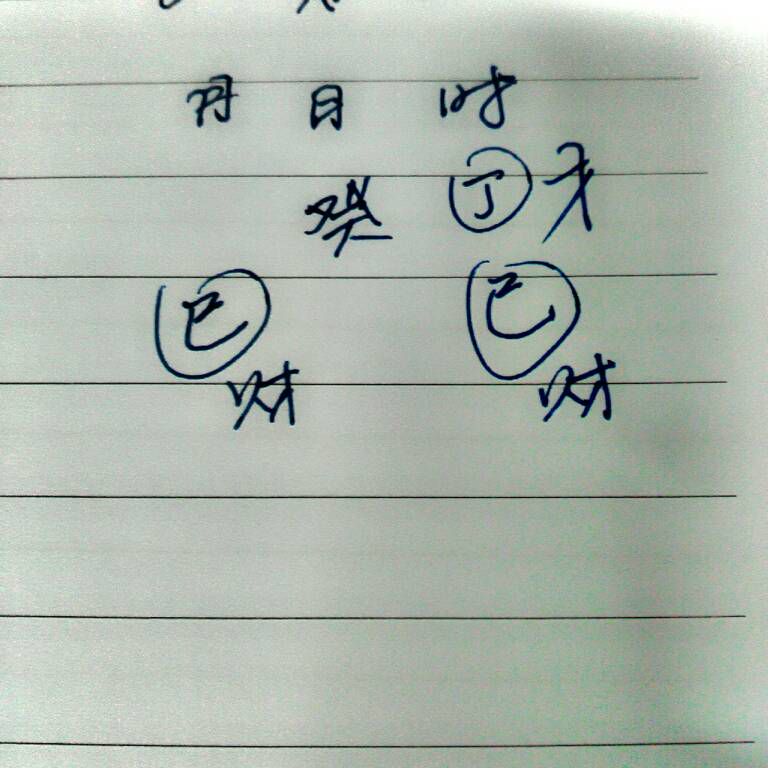 月 日 时
癸 丁 才
巳 巳
财 财